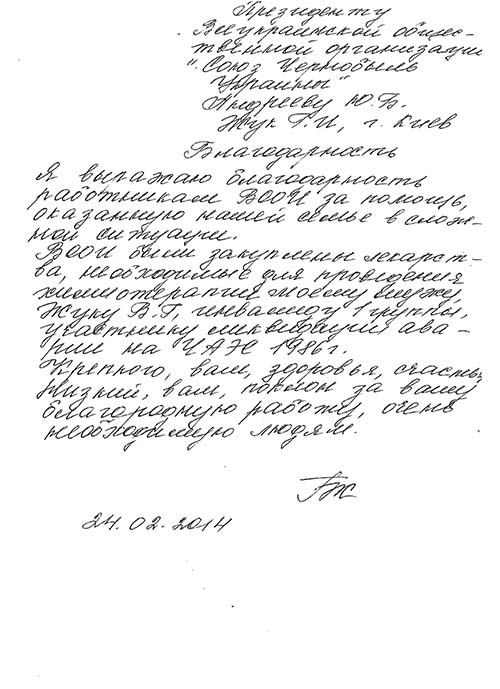 Президенту
Всеукраинской общес-
твенной организации
"Союз Чернобыль
Украины"
Андрееву Ю.Б.
Жук Г.И, г. Киев
Благодарность
Я выражаю благодарность
работникам ВООИ за помощь,
оказанную нашей семье в слож-
ной ситуации.
ВООИ были закуплены лекарст-
ва, необходимые для проведения
химиотерапии моему мужу,
Жуку В.Г, инвалиду 1 группы,
участнику ликвидации ава-
рии на ЧАЭС 1986г.
Крепкого, вам, здоровья, счастья
Низкий, вам, поклон за вашу
благородную работу, очень
необходимую людям.
24.02.2014